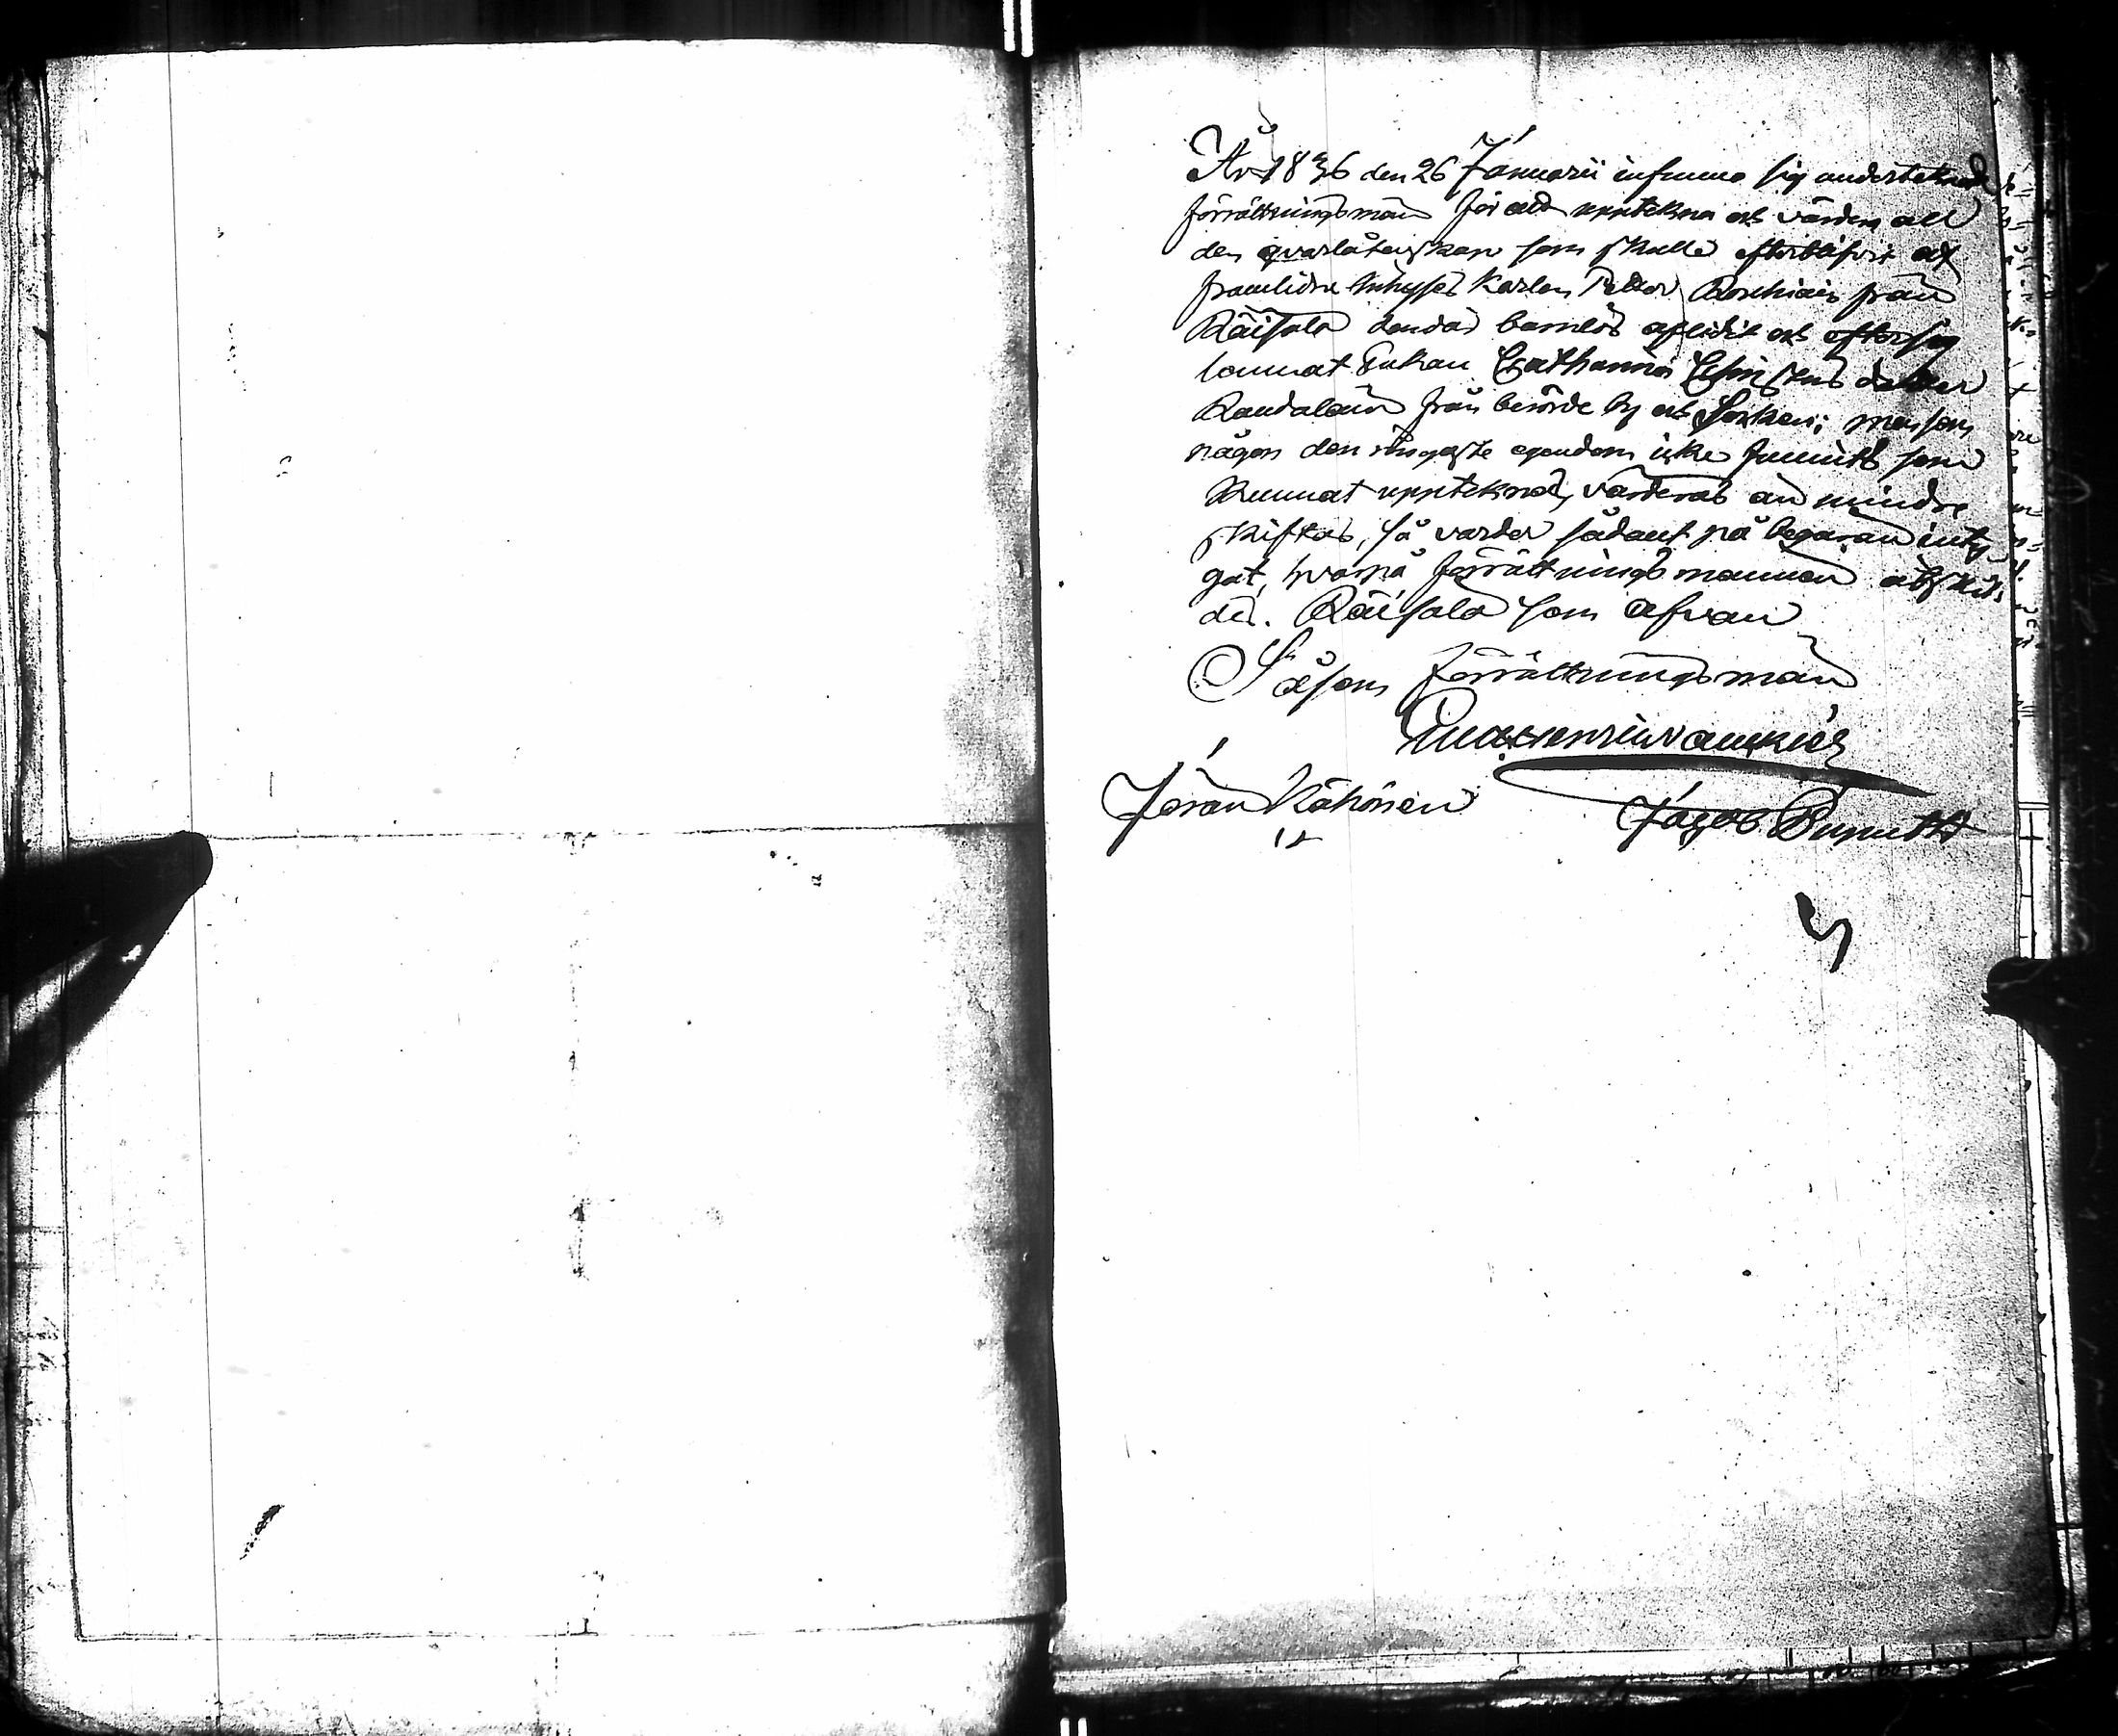 År 1836 den 26 Januarii infunno sig underteknade
förrättningsmän för att uppteknа ock värdera all
den qvarlåtenskap som skulle efterblifvit af
framlidne Inhyses Karlen Petter från
Räisälä hvilken barnlös aflidit ock efter sig
lämnat Enkan Catharina dotter
Kaudalain från berörde by ock Socken; men som
någon den ringaste egendom icke funnits som
kunnat uppteknas, värderas än mindre
skiftas, så varder sådant på begäran inty-
gat, hvarpå förrättningsmännen åtskil-
des. Räisälä som ofvan
Såsom förrättningsman
Jöran Kähönen Jacob